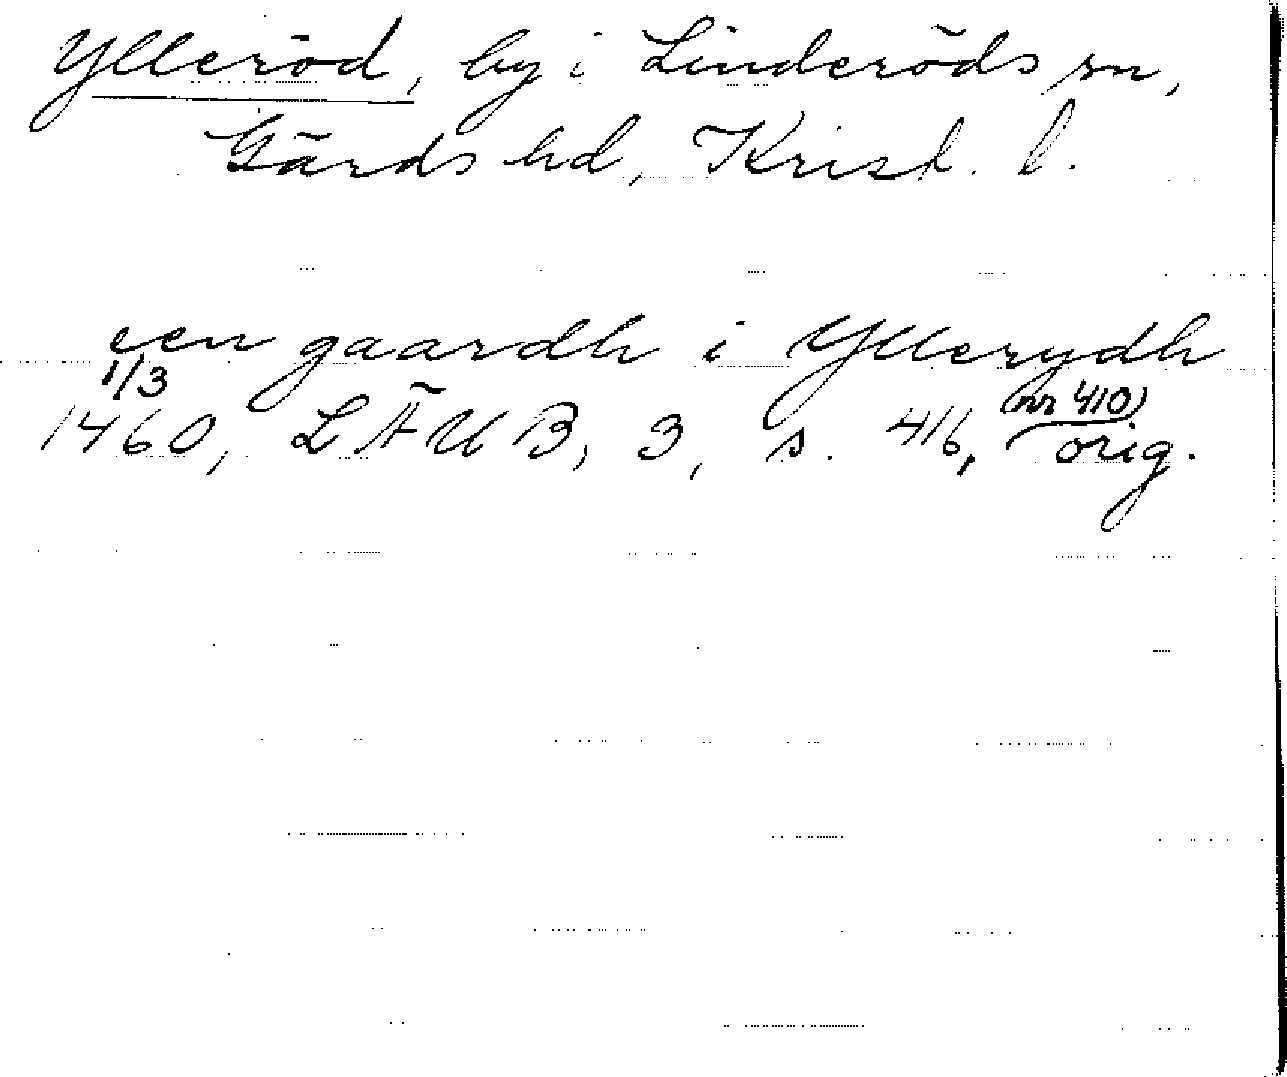 Ylleröd, by i Linderöds sn,
Gärds hd, Krist. l.
een gaardh i Yllerydh
1/3
1460, LÄUB, 3, s. 416, (nr 410) orig.